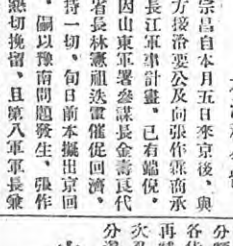 宗昌自本月五日來京後、與
方接洽要公及向張作霖商承
長江軍事計畫、已有端倪。
因山東軍署參謀長金壽良代
省長林憲祖迭電催促回濟、
持一切、旬日前本擬出京回
嗣以豫南問題發生、張作
懇切挽留、且第八軍軍長兼
分
各
再
次
分